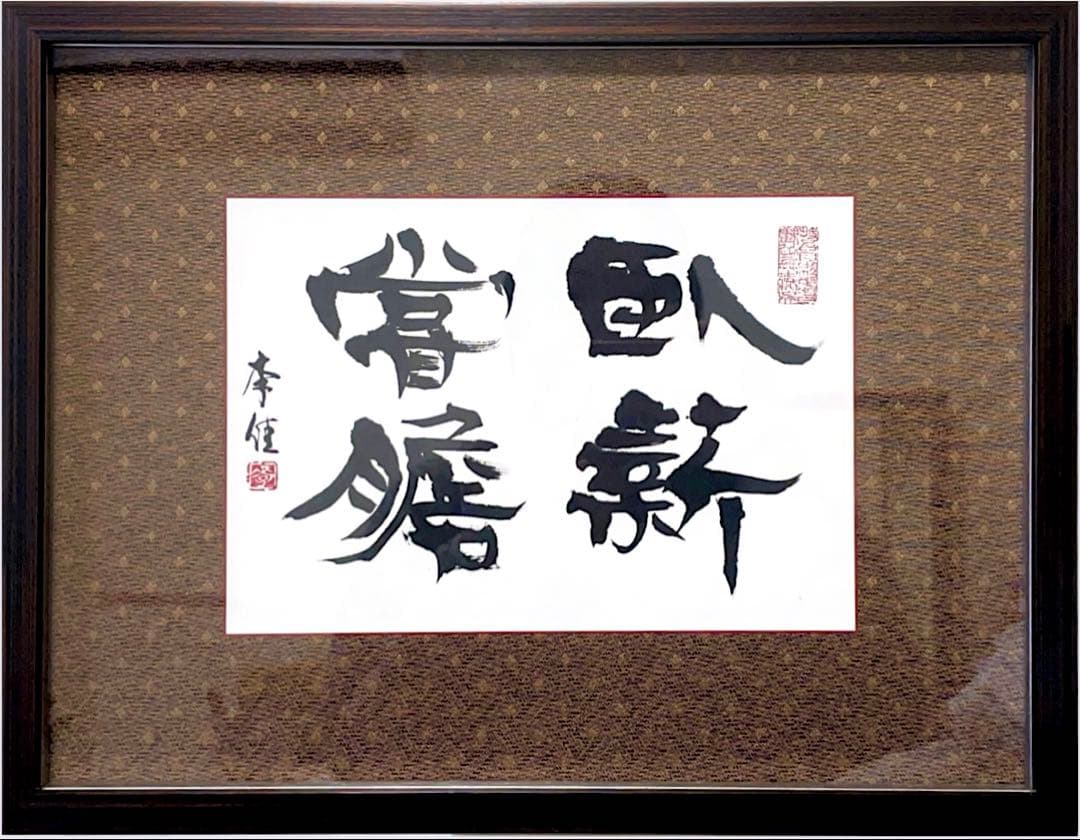 臥薪
嘗膽
李佳